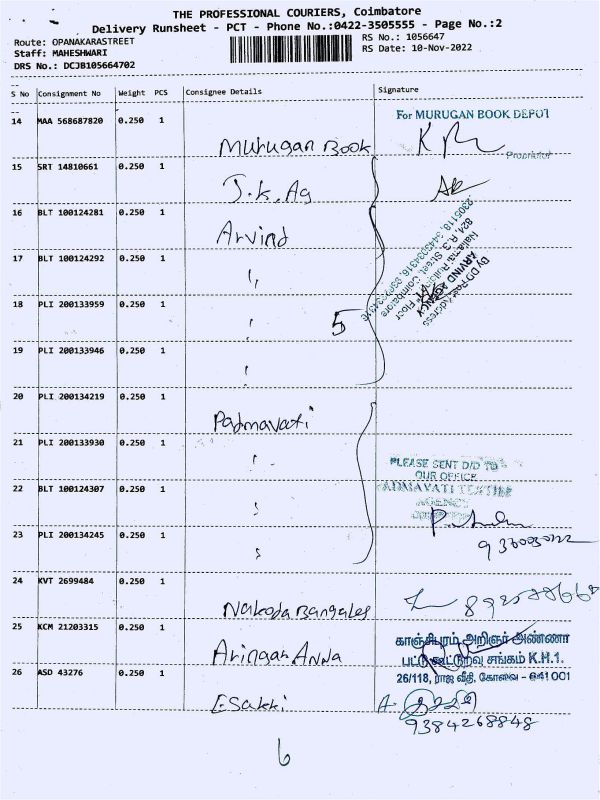 THE PROFESSIONAL COURIERS, Coimbatore
Delivery Runsheet - PCT - Phone No.:0422-3505555 - Page No.:2
Route: OPANAKARASTREET
Staff: MAHESHWARI
DRS No.: DCJB105664702
RS No.: 1056647
RS Date: 10-Nov-2022
S No Consignment No Weight PCS Consignee Details Signature
14 MAA 568687820 0.250 1 Murugan Book For MURUGAN BOOK DEPOT
Proprietor
15 SRT 14810661 0.250 1 J.K.Ag
16 BLT 100124281 0.250 1 Arvind
17 BLT 100124292 0.250 1 "
18 PLI 200133959 0.250 1 '
5
By DD Post Address
ARVIND AGENCY
824, R.G. Street, Coimbatore
19 PLI 200133946 0.250 1 '
20 PLI 200134219 0.250 1 Padmavati
21 PLI 200133930 0.250 1 '
22 BLT 100124307 0.250 1 '
PLEASE SENT D/D TO
OUR OFFICE
PADMAVATI TEXTILE
AGENCY
23 PLI 200134245 0.250 1 '
24 KVT 2699484 0.250 1 Nakoda Bangales
25 KCM 21203315 0.250 1 Aringar Anna
காஞ்சிபுரம் அறிஞர் அண்ணா
பட்டு கூட்டுறவு சங்கம் K.H.1.
26/118, ராஜ வீதி, கோவை - 641 001
26 ASD 43276 0.250 1 Esakki
9384268848
6